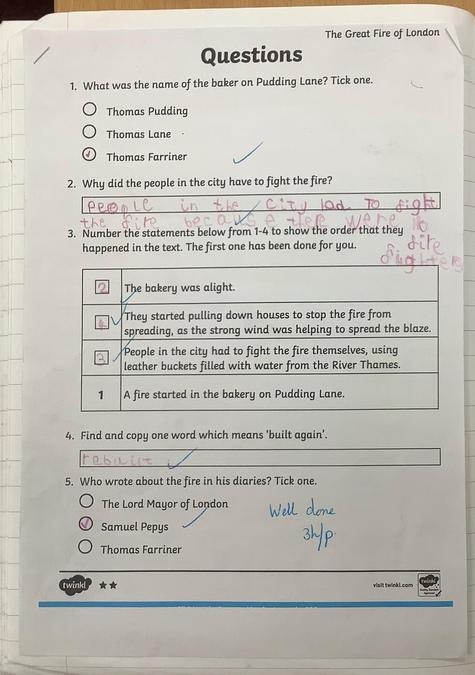 The Great Fire of London
Questions
1. What was the name of the baker on Pudding Lane? Tick one.
Thomas Pudding
Thomas Lane
Thomas Farriner
2. Why did the people in the city have to fight the fire?
People in the city had to fight
the fire because ther were no
fire
fighters
3. Number the statements below from 1-4 to show the order that they
happened in the text. The first one has been done for you.
2 The bakery was alight.
4 They started pulling down houses to stop the fire from
spreading, as the strong wind was helping to spread the blaze.
3 People in the city had to fight the fire themselves, using
leather buckets filled with water from the River Thames.
1 A fire started in the bakery on Pudding Lane.
4. Find and copy one word which means 'built again'.
rebuilt
5. Who wrote about the fire in his diaries? Tick one.
The Lord Mayor of London
Samuel Pepys
Thomas Farriner
Well done
3h/p.
twinkl
visit twinkl.com
twinkl